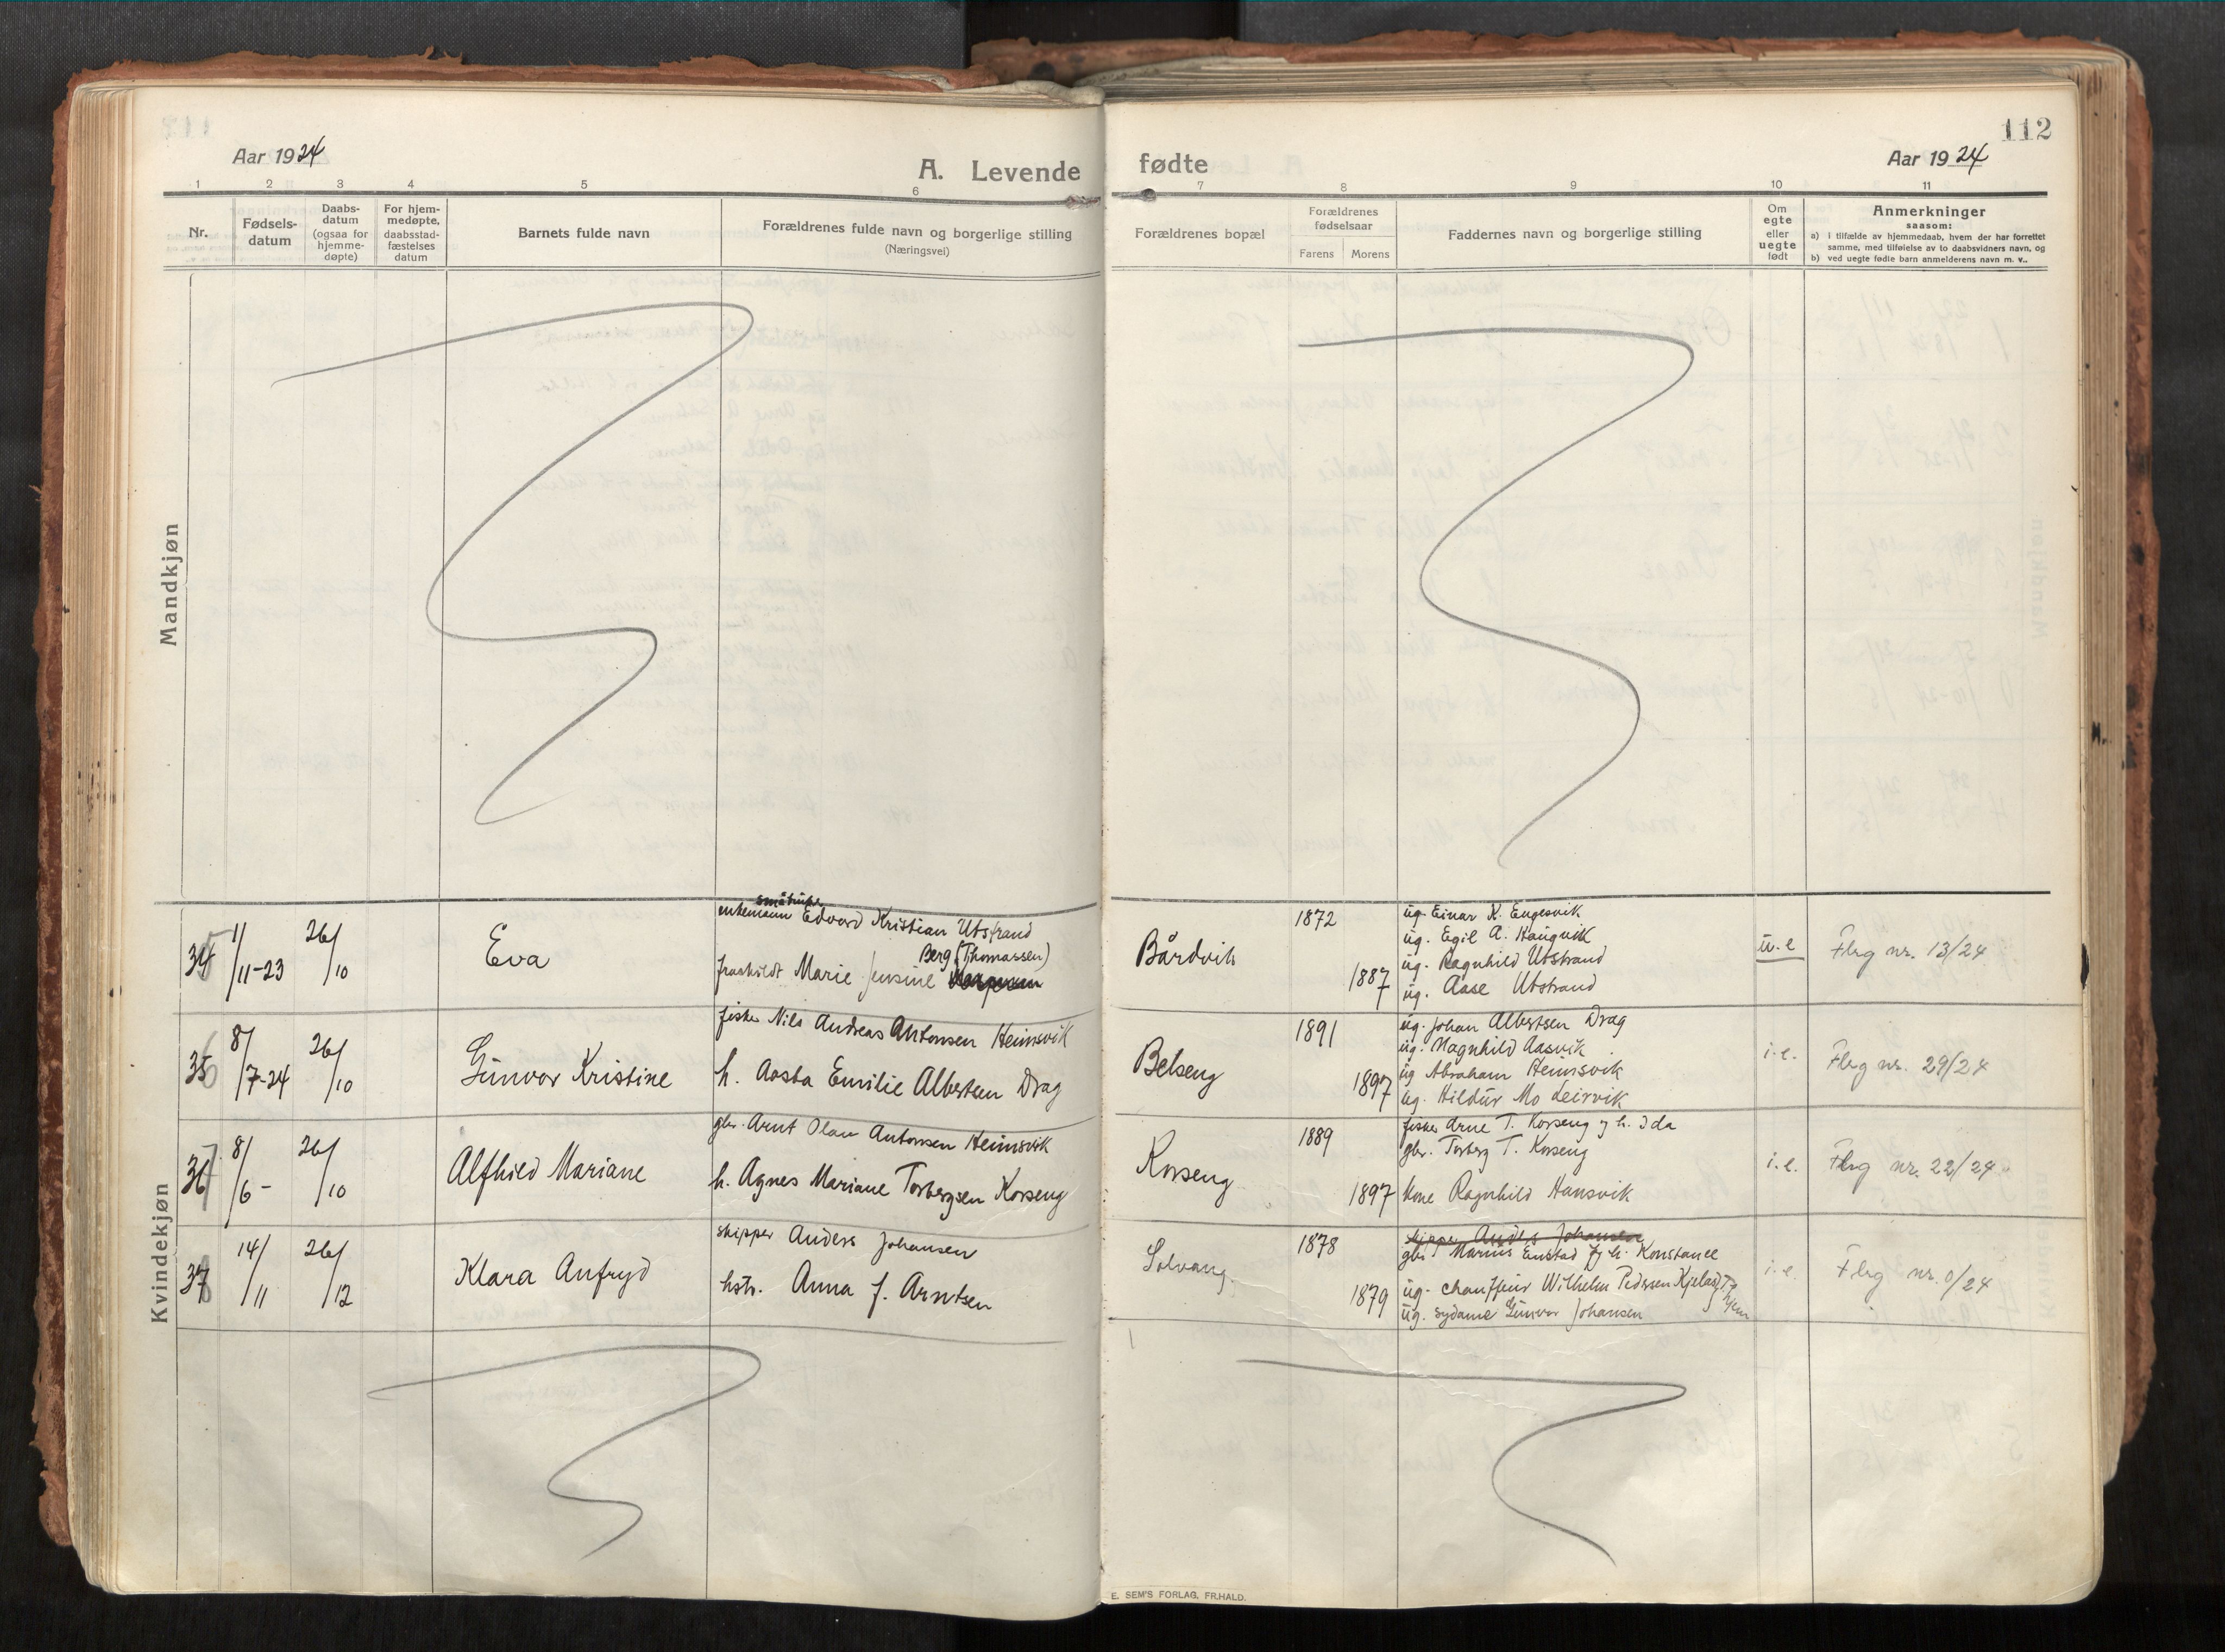 112
Aar 1924
A. Levende fødte
Aar 1924
1 2 3 4 5 6 7 8 9 10 11
Nr.
Fødsels-
datum
Daabs-
datum
(ogsaa for
hjemme-
døpte)
For hjem-
medøpte,
daabsstad-
fæstelses
datum
Barnets fulde navn
Forældrenes fulde navn og borgerlige stilling
(Næringsvei)
Forældrenes bopæl
Forældrenes
fødselsaar
Farens Morens
Faddernes navn og borgerlige stilling
Om
egte
eller
uegte
født
Anmerkninger
saasom:
a) i tilfælde av hjemmedaab, hvem der har forrettet
samme, med tilføielse av to daabsvidners navn, og
b) ved uegte fødte barn anmelderens navn m. v..
Mandkjøn
Kvindekjøn
34
1/11-23
26/10
Eva
enkemann Edvard Kristian Utstrand
Berg (Thomassen)
fraskildt Marie Jensine
Bårdvik
1872
1887
ug. Einar K. Engesvik
ug. Egil A. Haugvik
ug. Ragnhild Utstrand
ug. Aase Utstrand
u.e
Flrg nr. 13/24
35
8/7-24
26/10
Gunvor Kristine
fisker Nils Andreas Antonsen Heimsvik
h. Aasta Emilie Albertsen Drag
Belseng
1891
1897
ug. Johan Albertsen Drag
ug. Magnhild Aasvik
ug Abraham Heimsvik
ug. Hildur Mo Leirvik
i.e.
Flrg nr. 29/24
36
8/6 -
26/10
Alfhild Mariane
gbr. Arnt Olau Antonsen Heimsvik
h. Agnes Mariane Torbergsen Korseng
Korseng
1889
1897
fisker Arne T. Korseng og h. Ida
gbr. Torberg T. Korseng
Kone Ragnhild Hansvik
i.e.
Flrg nr. 22/24
37
14/11
26/12
Klara Anfryd
skipper Anders Johansen
hstr. Anna f. Arntsen
Solvang
1878
1879
skipper Anders Johansen
gbr. Marius Enstad og h. Konstance
ug. chauffeur Wilhelm Pedersen
ug. sydame Gunvor Johansen
i.e.
Flrg nr. 0/24
E. SEM'S FORLAG. FR.HALD.